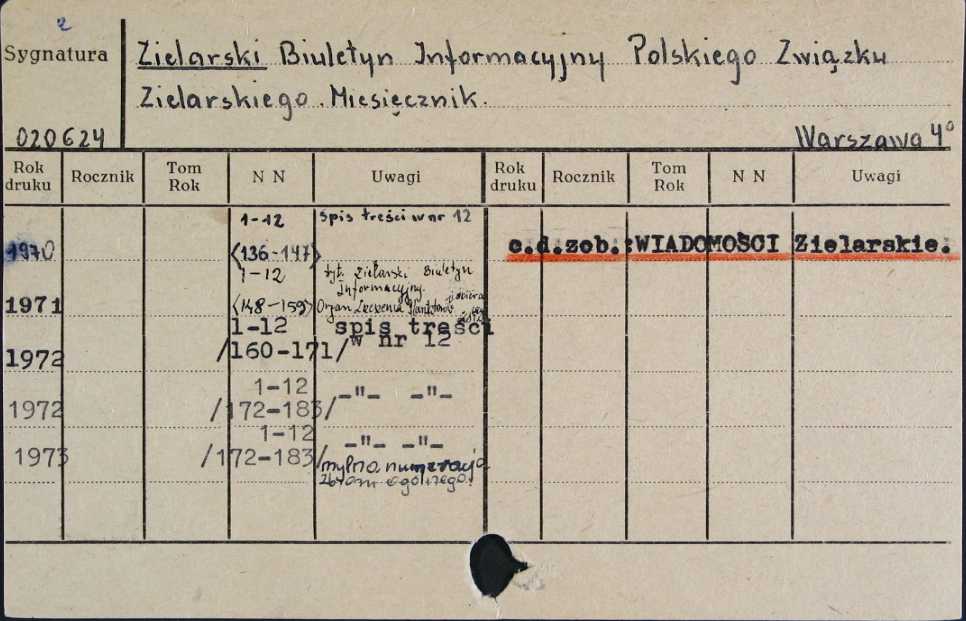 2
Sygnatura
Zielarski Biuletyn Informacyjny Polskiego Związku
Zielarskiego. Miesięcznik.
020624
Warszawa 4°
Rok druku Rocznik Tom Rok N N Uwagi Rok druku Rocznik Tom Rok N N Uwagi
1-12 spis treści w nr 12
1970 <136-147>
c.d.zob.:WIADOMOŚCI Zielarskie.
1-12 tyt. Zielarski Biuletyn
Informacyjny.
1971 <148-159> Organ
1-12 spis treści
w nr 12
1972 /160-171/
1-12 -"- -"-
1972 /172-183/
1-12 -"- -"-
1973 /172-183/
mylna numeracja